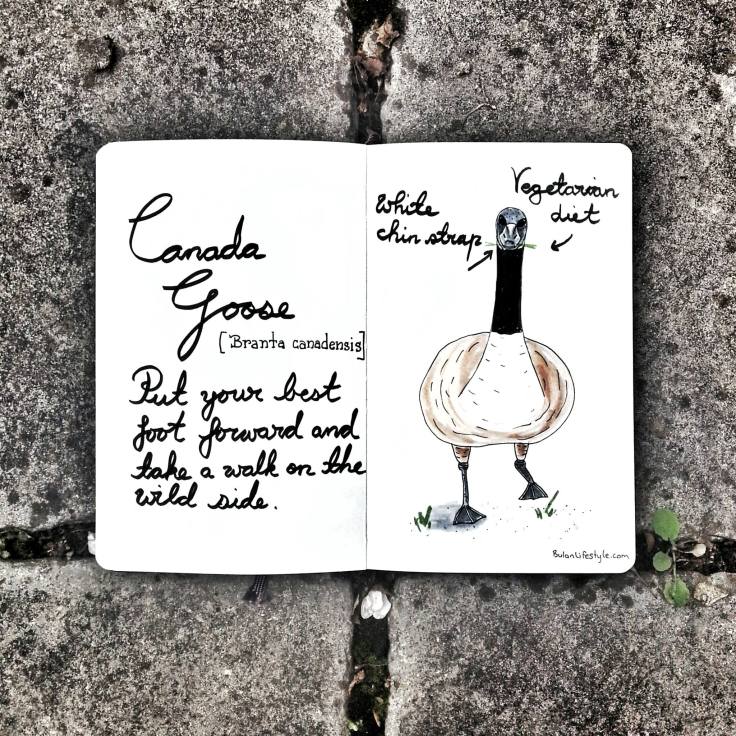 Canada
Goose
[Branta canadensis]
Put your best
foot forward and
take a walk on the
wild side.
White
chin strap
Vegetarian
diet
BulanLifestyle.com